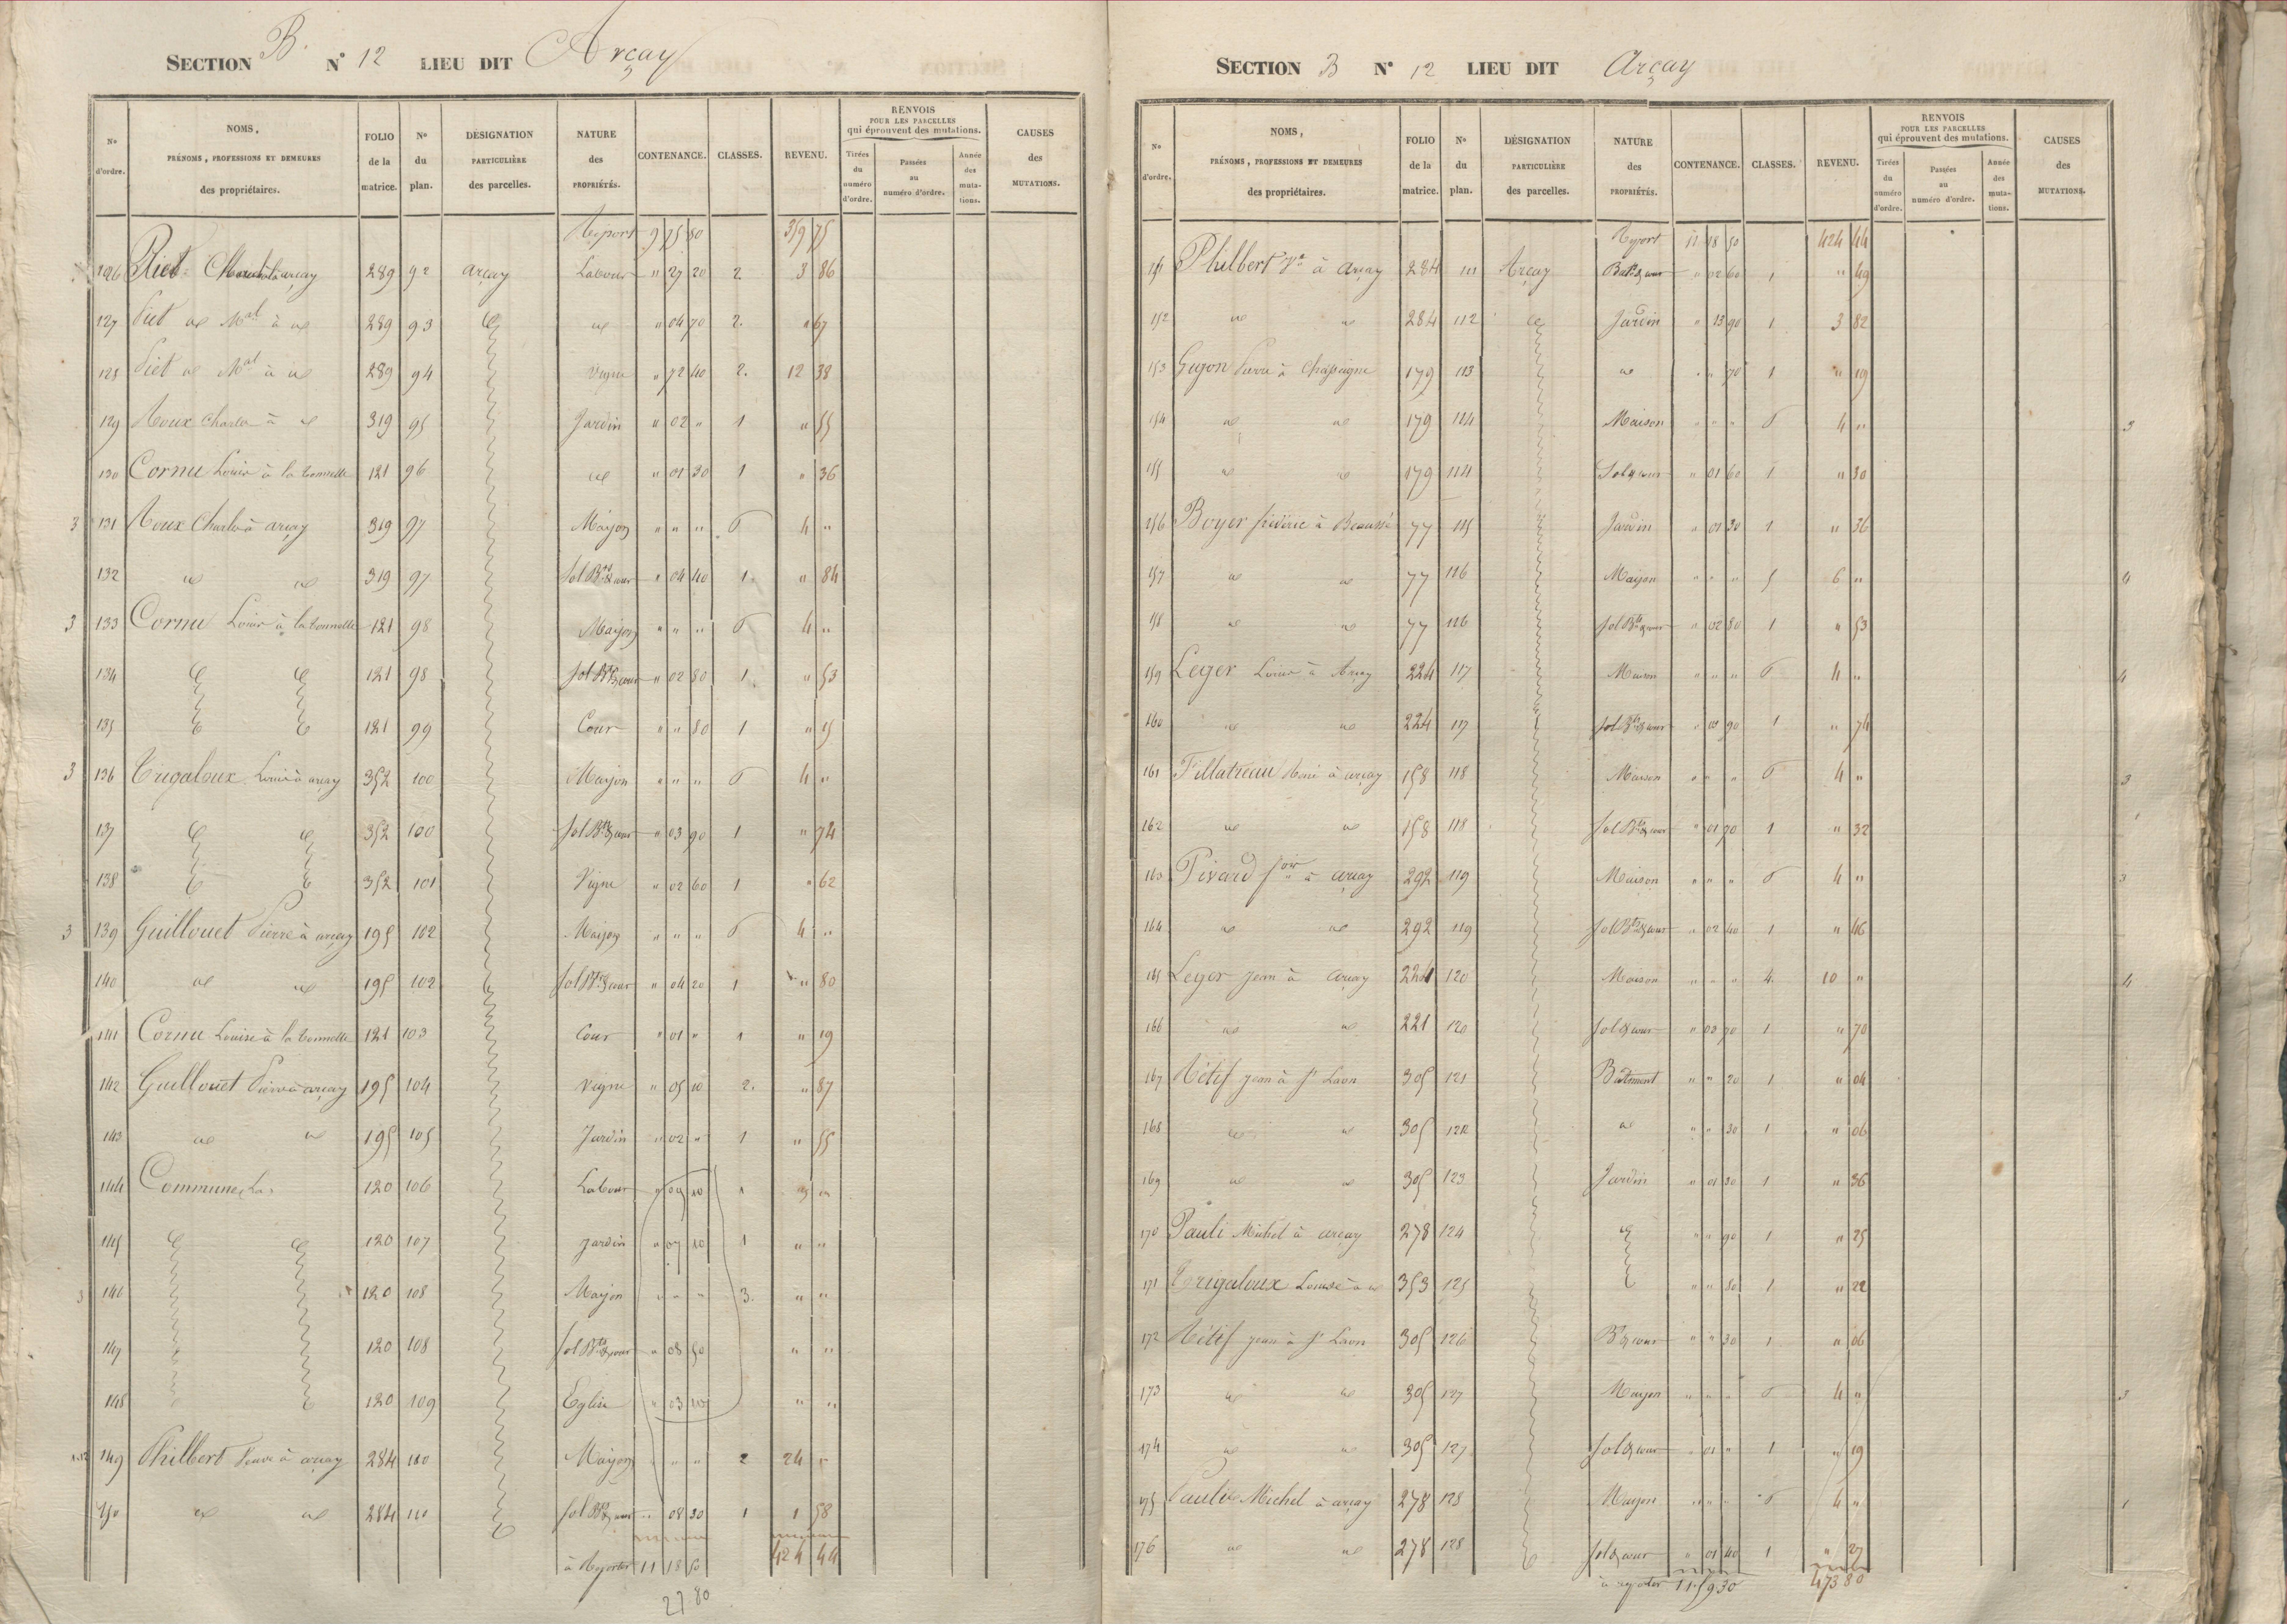 SECTION B. N° 12 LIEU DIT Arçay
N° d'ordre. NOMS, PRÉNOMS, PROFESSIONS ET DEMEURES des propriétaires. FOLIO de la matrice. N° du plan. DÉSIGNATION PARTICULIÈRE des parcelles. NATURE des PROPRIÉTÉS. CONTENANCE. CLASSES. REVENU. RENVOIS POUR LES PARCELLES qui éprouvent des mutations. Tirées du numéro d'ordre. Passées au numéro d'ordre. Année des mutations. CAUSES des MUTATIONS.
Report 9 75 80 319 75
126 Piet arçay 289 92 arçay Labour " 27 20 2 3 86
127 Piet id Mal à id 289 93 id id " 04 70 2. " 67
128 Piet id Mal à id 289 94 Vigne " 72 40 2. 12 38
129 Roux Charles à id 319 95 Jardin " 02 " 1 " 55
130 Cornu Louis à la tonnelle 121 96 id " 01 30 1 " 36
3 131 Roux Charles à arçay 319 97 Maison " " " 6 4 "
132 id id 319 97 Sol Bts & cour " 04 40 1. " 84
3 133 Cornu Louis à la tonnelle 121 98 Maison " " " 6 4 "
134 id id 121 98 Sol Bts & cour " 02 80 1 " 53
135 121 99 Cour " " 80 1 " 15
3 136 Trigaloux Louis à arçay 352 100 Maison " " " 6 4 "
137 id id 352 100 Sol Bts & cour " 03 90 1 " 74
138 352 101 Vigne " 02 60 1 " 62
3 139 Guillouet Pierre à arçay 195 102 Maison " " " 6 4 "
140 id id 195 102 Sol Bts & cour " 04 20 1 " 80
141 Cornu Louise à la tonnelle 121 103 Cour " 01 " 1 " 19
142 Guillouet Pierre à arçay 195 104 Vigne " 05 10 2. " 87
143 id id 195 105 Jardin " 02 " 1 " 55
144 Commune La 120 106 Labour " 09 10 1 " "
145 id id 120 107 Jardin " 07 10 1 " "
3 146 120 108 Maison " " " 3. " "
147 120 108 Sol Bts & cour " 08 50 " "
148 120 109 Eglise " 03 " "
149 Philbert Veuve à arçay 284 110 Maison " " " 2 24 "
150 id id 284 110 Sol Bts & cour " 08 30 1 1 58
à Reporter 11 18 50 424 44
27 80
SECTION B N° 12 LIEU DIT Arçay
N° d'ordre. NOMS, PRÉNOMS, PROFESSIONS ET DEMEURES des propriétaires. FOLIO de la matrice. N° du plan. DÉSIGNATION PARTICULIÈRE des parcelles. NATURE des PROPRIÉTÉS. CONTENANCE. CLASSES. REVENU. RENVOIS POUR LES PARCELLES qui éprouvent des mutations. Tirées du numéro d'ordre. Passées au numéro d'ordre. Année des mutations. CAUSES des MUTATIONS.
Report 11 18 50 424 44
151 Philbert Ve à Arçay 284 111 Arçay Bat. & cour " 02 60 1 " 49
152 id id 284 112 id Jardin " 13 90 1 3 82
153 Guyon Pierre à Chasseigne 179 113 id " " 70 1 " 19
154 id id 179 114 Maison " " " 6 4 " 3
155 id id 179 114 Sol & cour " 01 60 1 " 30
156 Boyer frédéric à Beaussé 77 115 Jardin " 01 30 1 " 36
157 id id 77 116 Maison " " " 5 6 " 4
158 id id 77 116 Sol Bts & cour " 02 80 1 " 53
159 Leger Louis à Arçay 224 117 Maison " " " 6 4 " 4
160 id id 224 117 Sol Bts & cour " 03 90 1 " 74
161 Fillatreau René à arçay 158 118 Maison " " " 6 4 " 3
162 id id 158 118 Sol Bts & cour " 01 70 1 " 32
163 Pivard fois à arçay 292 119 Maison " " " 6 4 " 3
164 id id 292 119 Sol Bts & cour " 02 40 1 " 46
165 Leger Jean à arçay 221 120 Maison " " " 4. 10 " 4
166 id id 221 120 Sol & cour " 03 70 1 " 70
167 Rétif Jean à St Laon 305 121 Bâtiment " " 20 1 " 04
168 id id 305 122 id " " 30 1 " 06
169 id id 305 123 Jardin " 01 30 1 " 36
170 Pauli Michel à arçay 278 124 id " " 90 1 " 25
171 Trigaloux Louise à id 353 125 " " 80 1 " 22
172 Rétif Jean à St Laon 305 126 Bt & cour " " 30 1 " 06
173 id id 305 127 Maison " " " 6 4 " 3
174 id id 305 127 Sol & cour " 01 " 1 " 19
175 Pauli Michel à arçay 278 128 Maison " " " 6 4 " 1
176 id id 278 128 Sol & cour " 01 40 1 " 27
à reporter 11 59 30 473 80